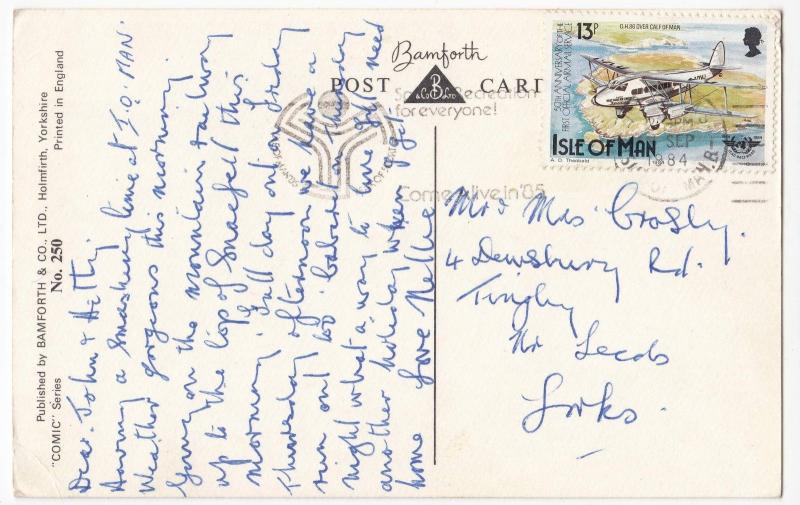 Published by BAMFORTH & CO. LTD., Holmfirth, Yorkshire
Printed in England
"COMIC" Series
No. 250
Bamforth
POST CARD
B
& Co Ltd
Dear John & Hetty.
Having a smashing time at I.O. MAN.
Weather gorgeous this morning
Going on the Mountain railway
up to the top of Snaefell this
morning. Full day out Friday
Thursday afternoon we have a
run out to Cabaret on
night what a way to live I'll need
another holiday when I get
home love Nellie
Recreation
for everyone!
Come alive in '85
SEP
1984
13P
50TH ANNIVERSARY OF THE
FIRST OFFICIAL AIRMAIL SERVICE
D.H.86 OVER CALF OF MAN
ISLE OF MAN
A. D. Theobald
Mr & Mrs Crosby.
4 Dewsbury Rd.
Tingley
Nr Leeds
Yorks.